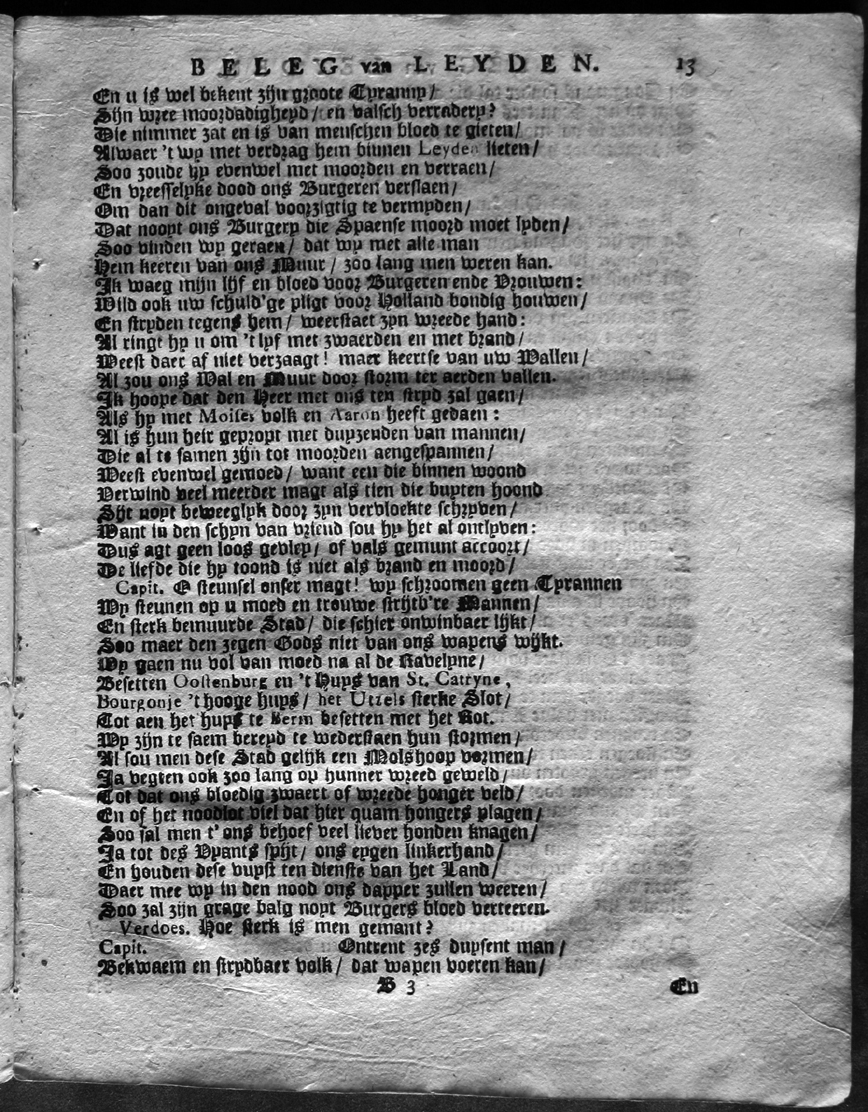 BELEG van LEYDEN. 13
En u is wel bekent zijn groote Tyranny/
Sijn wree moordadigheyd/ en valsch verradery?
Die nimmer zat en is van menschen bloed te gieten/
Alwaer 't wy met verdrag hem binnen Leyden lieten/
Soo zoude hy evenwel met moorden en verraen/
En vreesselyke dood ons Burgeren verslaen/
Om dan dit ongeval voorzigtig te vermyden/
Dat noyt ons Burgery die Spaense moord moet lyden/
Soo vinden wy geraen/ dat wy met alle man
Hem keeren van ons Muur/ zoo lang men weren kan.
Ik waeg mijn lijf en bloed voor Burgeren ende Vrouwen:
Wild ook uw schuld'ge pligt voor Holland bondig houwen/
En stryden tegens hem/ weerstaet zyn wreede hand:
Al ringt hy u om 't lyf met zwaerden en met brand/
Weest daer af niet verzaagt! maer keertse van uw Wallen/
Al zou ons Wal en Muur door storm ter aerden vallen.
Ik hoope dat den Heer met ons ten stryd zal gaen/
Als hy met Moises volk en Aaron heeft gedaen:
Al is hun heir gepropt met duyzenden van mannen/
Die al te samen zijn tot moorden aengespannen/
Weest evenwel gemoed/ want een die binnen woond
Verwind veel meerder magt als tien die buyten hoond
Sijt noyt beweeglyk door zyn vervloekte schryven/
Want in den schyn van vriend sou hy het al ontlyven:
Dus agt geen loos gevley/ of vals gemunt accoort/
De liefde die hy toond is niet als brand en moord/
Capit. O steunsel onser magt! wy schroomen geen Tyrannen
Wy steunen op u moed en trouwe strijtb're Mannen/
En sterk bemuurde Stad/ die schier onwinbaer lijkt/
Soo maer den zegen Gods niet van ons wapens wijkt.
Wy gaen nu vol van moed na al de Ravelyne/
Besetten Oostenburg en 't Huys van St. Catryne,
Bourgonje 't hooge huys/ het Utzels sterke Slot/
Tot aen het huys te Berm besetten met het Rot.
Wy zijn te saem bereyd te wederstaen hun stormen/
Al sou men dese Stad gelijk een Molshoop vormen/
Ja vegten ook zoo lang op hunner wreed geweld/
Tot dat ons bloedig zwaert of wreede honger veld/
En of het noodlot viel dat hier quam hongers plagen/
Soo sal men t' ons behoef veel liever honden knagen/
Ja tot des Vyants spijt/ ons eygen linkerhand/
En houden dese vuyst ten dienste van het Land/
Daer mee wy in den nood ons dapper zullen weeren/
Soo zal zijn grage balg noyt Burgers bloed verteeren.
Verdoes. Hoe sterk is men gemant?
Capit. Ontrent zes duysent man/
Bekwaem en strydbaer volk/ dat wapen voeren kan/
B 3 En